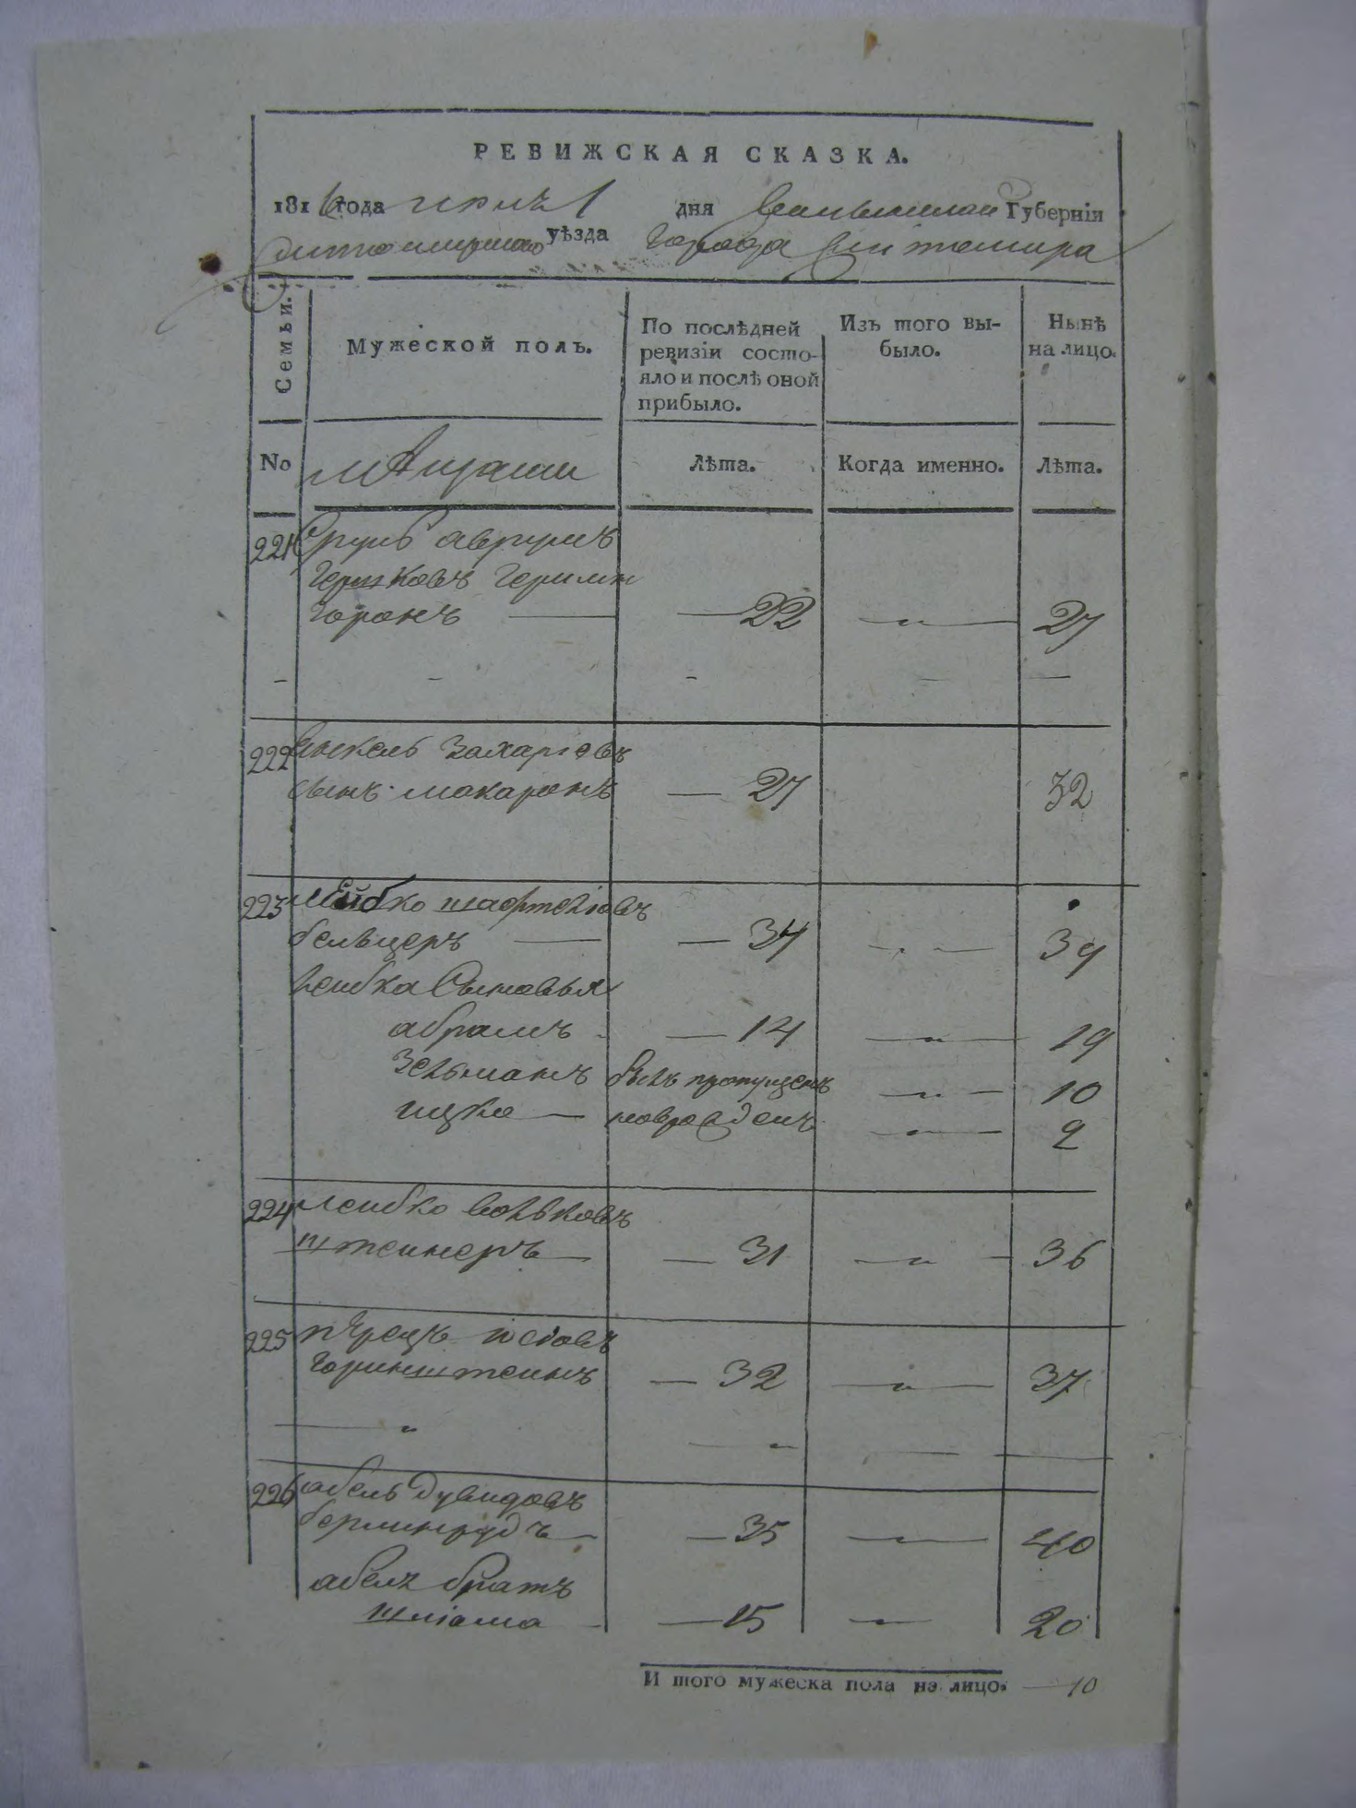 РЕВИЖСКАЯ СКАЗКА.
1816 года июнь 1 дня Волынской Губернія
Житомирского уѣзда Города Житомира
Семьи.
Мужеской полъ.
По послѣдней ревизіи состо-
яло и послѣ оной прибыло.
Изъ того вы-
было.
Нынѣ
на лицо.
No
мѣщане
Лѣта.
Когда именно.
Лѣта.
221 Сруль аврумъ
Гершковъ
22 27
222 Янкель Захаріевъ
сынъ макаронъ 27 32
223 Лейбко
бельцеръ 34 39
лейбка Сыновья
абрамъ 14 19
Зельманъ былъ пропущенъ 10
ицко новрожденъ 2
224 лейбко волковъ
штейнеръ 31 36
225 перецъ іосіовъ
горинштеинъ 32 37
226 абель дувидовъ
35 40
абеля братъ
шліома 15 20
И того мужеска пола на лицо. 10